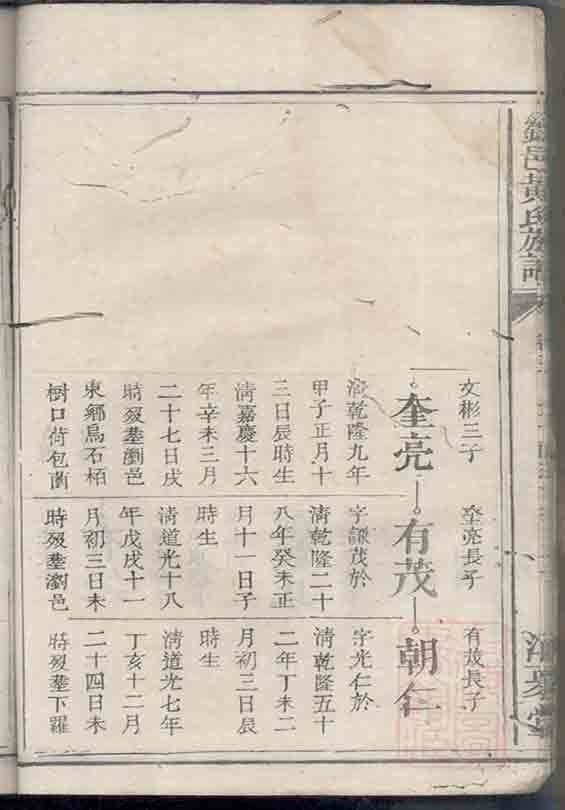 邑黃氏族譜
文彬三子
奎亮
清乾隆九年
甲子正月十
三日辰時生
清嘉慶十六
年辛未三月
二十七日戌
時歿塟瀏邑
東鄉烏石栢
樹口荷包崗
奎亮長子
有茂
字謙茂於
清乾隆二十
八年癸未正
月十一日子
時生
清道光十八
年戊戌十一
月初三日未
時歿塟瀏邑
有茂長子
朝仁
字光仁於
清乾隆五十
二年丁未二
月初三日辰
時生
清道光七年
丁亥十二月
二十四日未
時歿塟下羅
堂